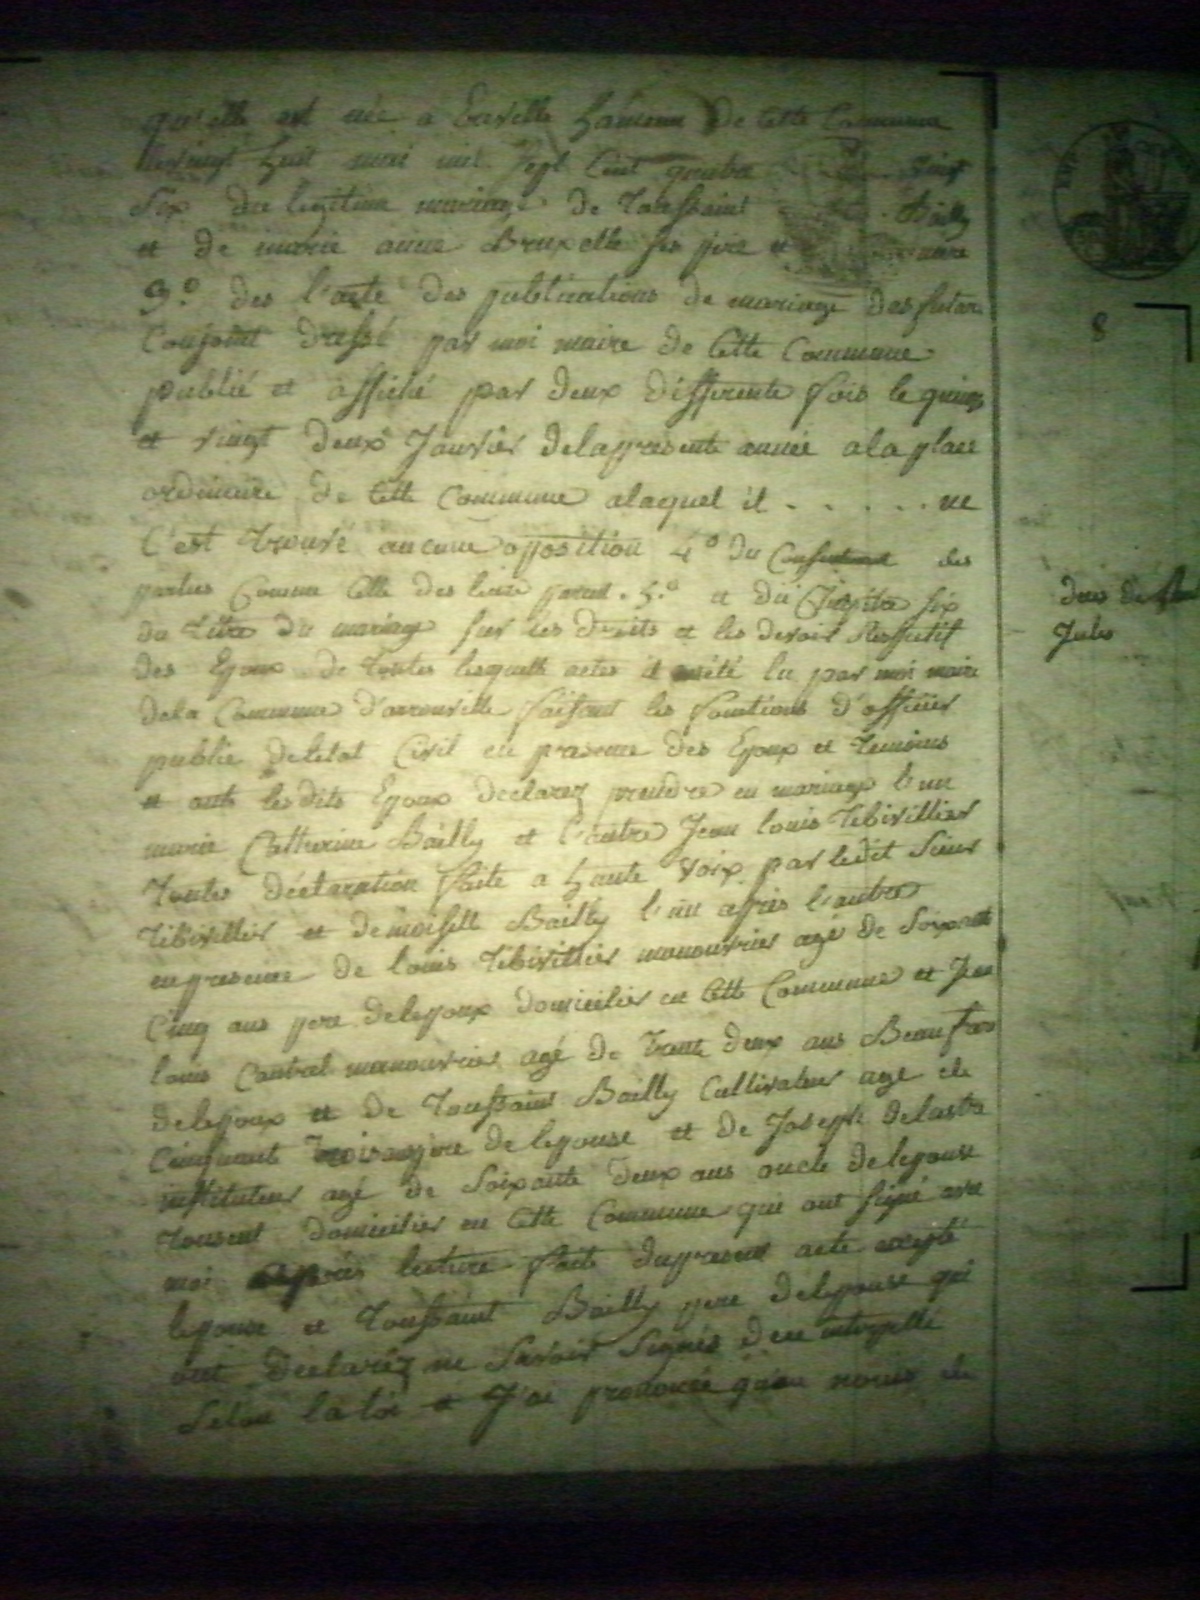 qu'elle est née a hameau de cette Commune
vingt huit mai mil sept Cent quatre vingt
Six du legitime mariage de Toussaint Bailly
et de marie anne Bruxelle ses pere et mere
3.° des l'acte des publications de mariage des futur
Conjoint dressé par moi maire de Cette Commune
publié et affiché par deux differente fois le quinze
et vingt deux Janvier delapresente année a la place
ordinaire de Cette Commune alaquel il . . . . . . ne
C'est trouvé aucune opposition 4.° du des
parties Comme Celle des 5.° et du Chapitre six
du titre du mariage sur les droits et les devoir Respectif
des Epoux de toutes lesquelle actes il lu par moi maire
dela Commune d'arronville faisant les fonctions d'officier
public deletat Civil en presence des Epoux et temoins
et ont lesdits Epoux declarez prendre en mariage l'un
marie Catherine Bailly et l'autre Jean louis tibivillier
toutes déclaration faite a haute voix par ledit Sieur
tibivillier et demoiselle Bailly l'un après l'autre
en presence de louis tibivillier manouvrier agé de Soixante
Cinq ans pere delepoux domicilier en Cette Commune et Jean
louis manouvrier agé de trante deux ans Beaufrere
delepoux et de Toussaint Bailly Cultivateur agé de
Cinquante trois ans pere de lepouse et de Joseph
instituteur agé de Soixante deux ans oncle delepouse
tousent domicilier en Cette Commune qui ont signé avec
moi après lecture faite dupresent acte excepté
lepouse et Toussaint Bailly pere delepouse qui
ont declarez ne Savoir Signés deu interpellé
Selon la loi et J'ai prononcé qu'au nom de
8
Jules